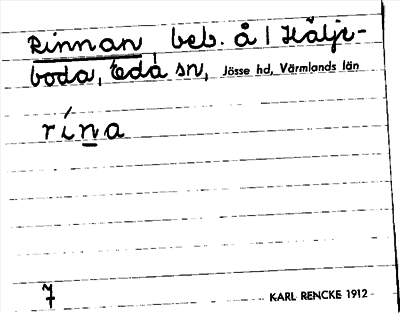 Rinnan, beb. å 1 Hälje-
boda, Eda sn, Jösse hd, Värmlands län
rína
7
KARL RENCKE 1912